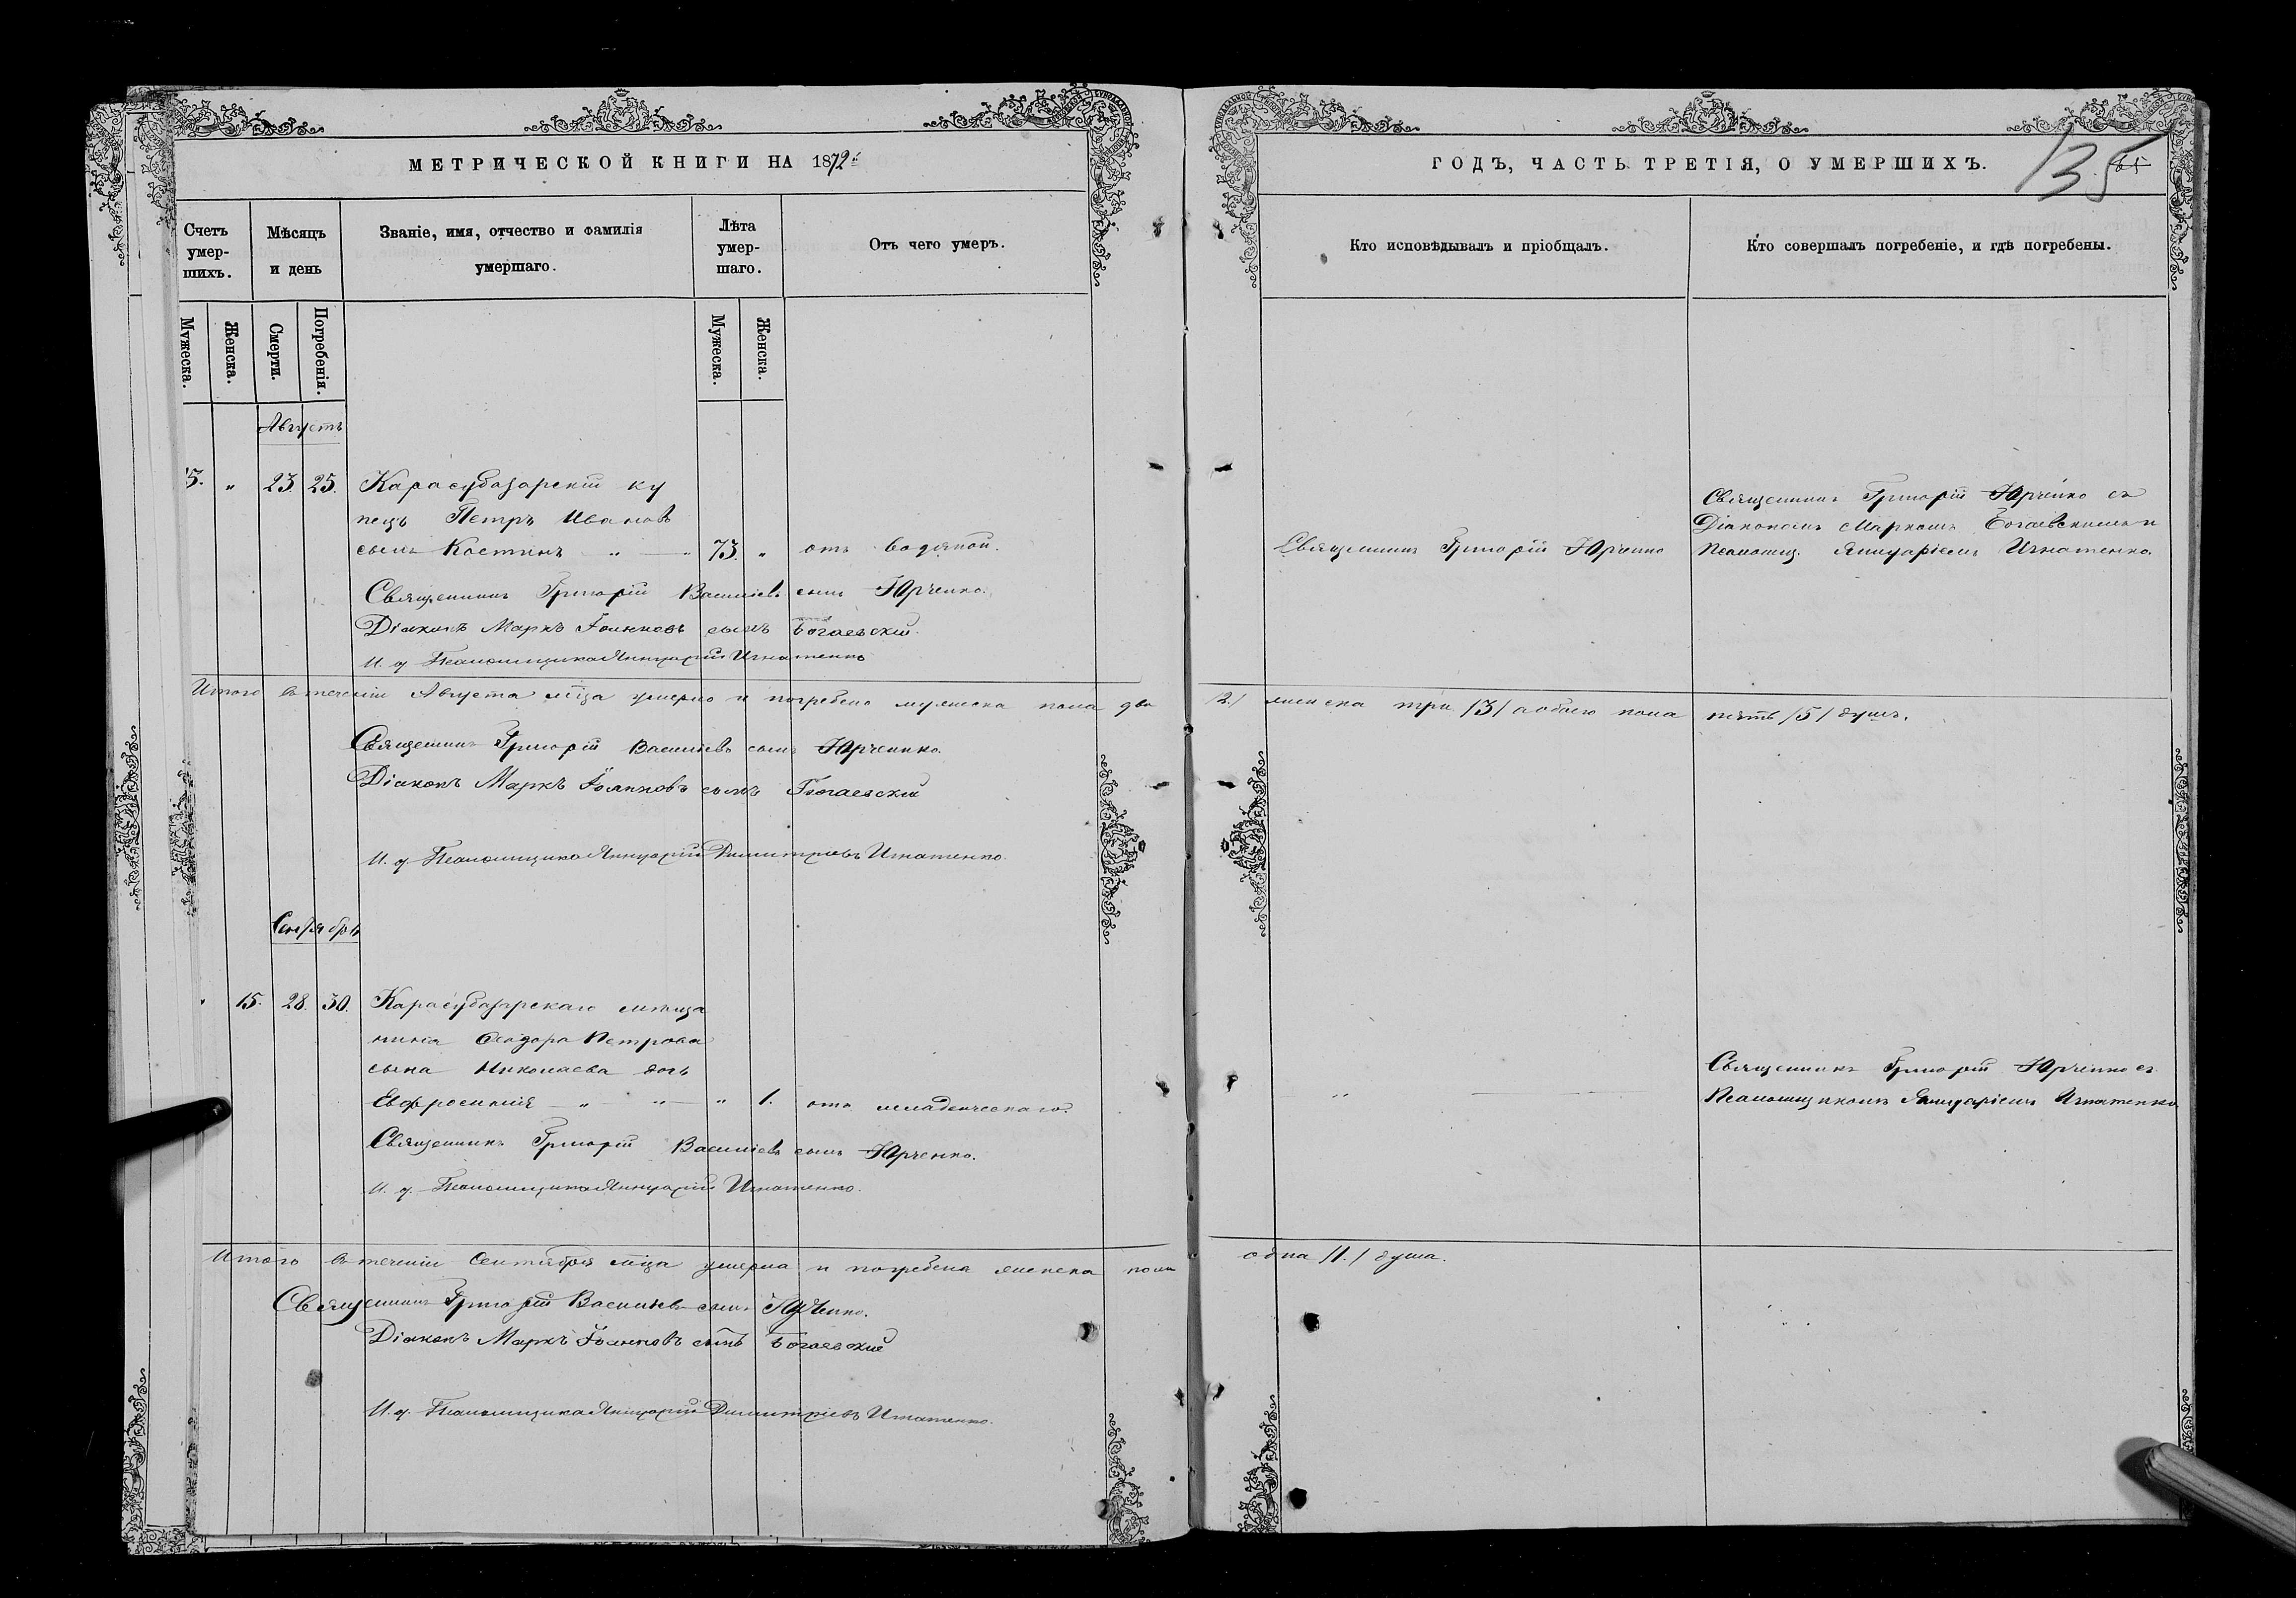 МЕТРИЧЕСКОЙ КНИГИ НА 1872й
Счетъ умер-шихъ.
Мѣсяцъ и день
Званіе, имя, отчество и фамилія умершаго.
Лѣта умер-шаго.
Отъ чего умеръ.
Мужеска.
Женска.
Смерти.
Погребенія.
Мужеска.
Женска.
Августъ
5. " 23. 25. Карасубазарскій ку
пецъ Петръ Ивановъ
сынъ Костинъ " — " 73. " отъ водяной.
Священникъ Григорій Васильевъ сынъ Юрченко.
Діаконъ Маркъ Іоанновъ сынъ Богаевскій.
И. д. Псаломщика Яннуарій Игнатенко
Итого въ теченіи Августа мѣца умерло и погребено мужеска пола два
Священникъ Григорій Васильевъ сынъ Юрченко.
Діаконъ Маркъ Іоанновъ сынъ Богаевскій
И. д. Псаломщика Яннуарій Димитріевъ Игнатенко.
Сентябрь
" 15. 28. 30. Карасубазарскаго мѣща
нина Ѳеодора Петрова
сына Николаева дочь
Евфросинія — " — " — " 1. отъ младенческаго.
Священникъ Григорій Васильевъ сынъ Юрченко.
И. д. Псаломщика Яннуарій Игнатенко.
Итого въ теченіи Сентября мѣца умерла и погребена женска пола
Священникъ Григорій Васильевъ сынъ Юрченко.
Діаконъ Маркъ Іоанновъ сынъ Богаевскій
И. д. Псаломщика Яннуарій Димитріевъ Игнатенко.
ГОДЪ, ЧАСТЬ ТРЕТІЯ, О УМЕРШИХЪ.
135
Кто исповѣдывалъ и пріобщалъ.
Кто совершалъ погребеніе, и гдѣ погребены.
Священникъ Григорій Юрченко
Священникъ Григорій Юрченко съ
Діакономъ Маркомъ Богаевскимъ и
Псаломщ. Яннуаріемъ Игнатенко.
/2/ женска три /3/ а обоего пола пять /5/ душъ.
Священникъ Григорій Юрченко съ
Псаломщикомъ Яннуаріемъ Игнатенко
одна /1./ душа.